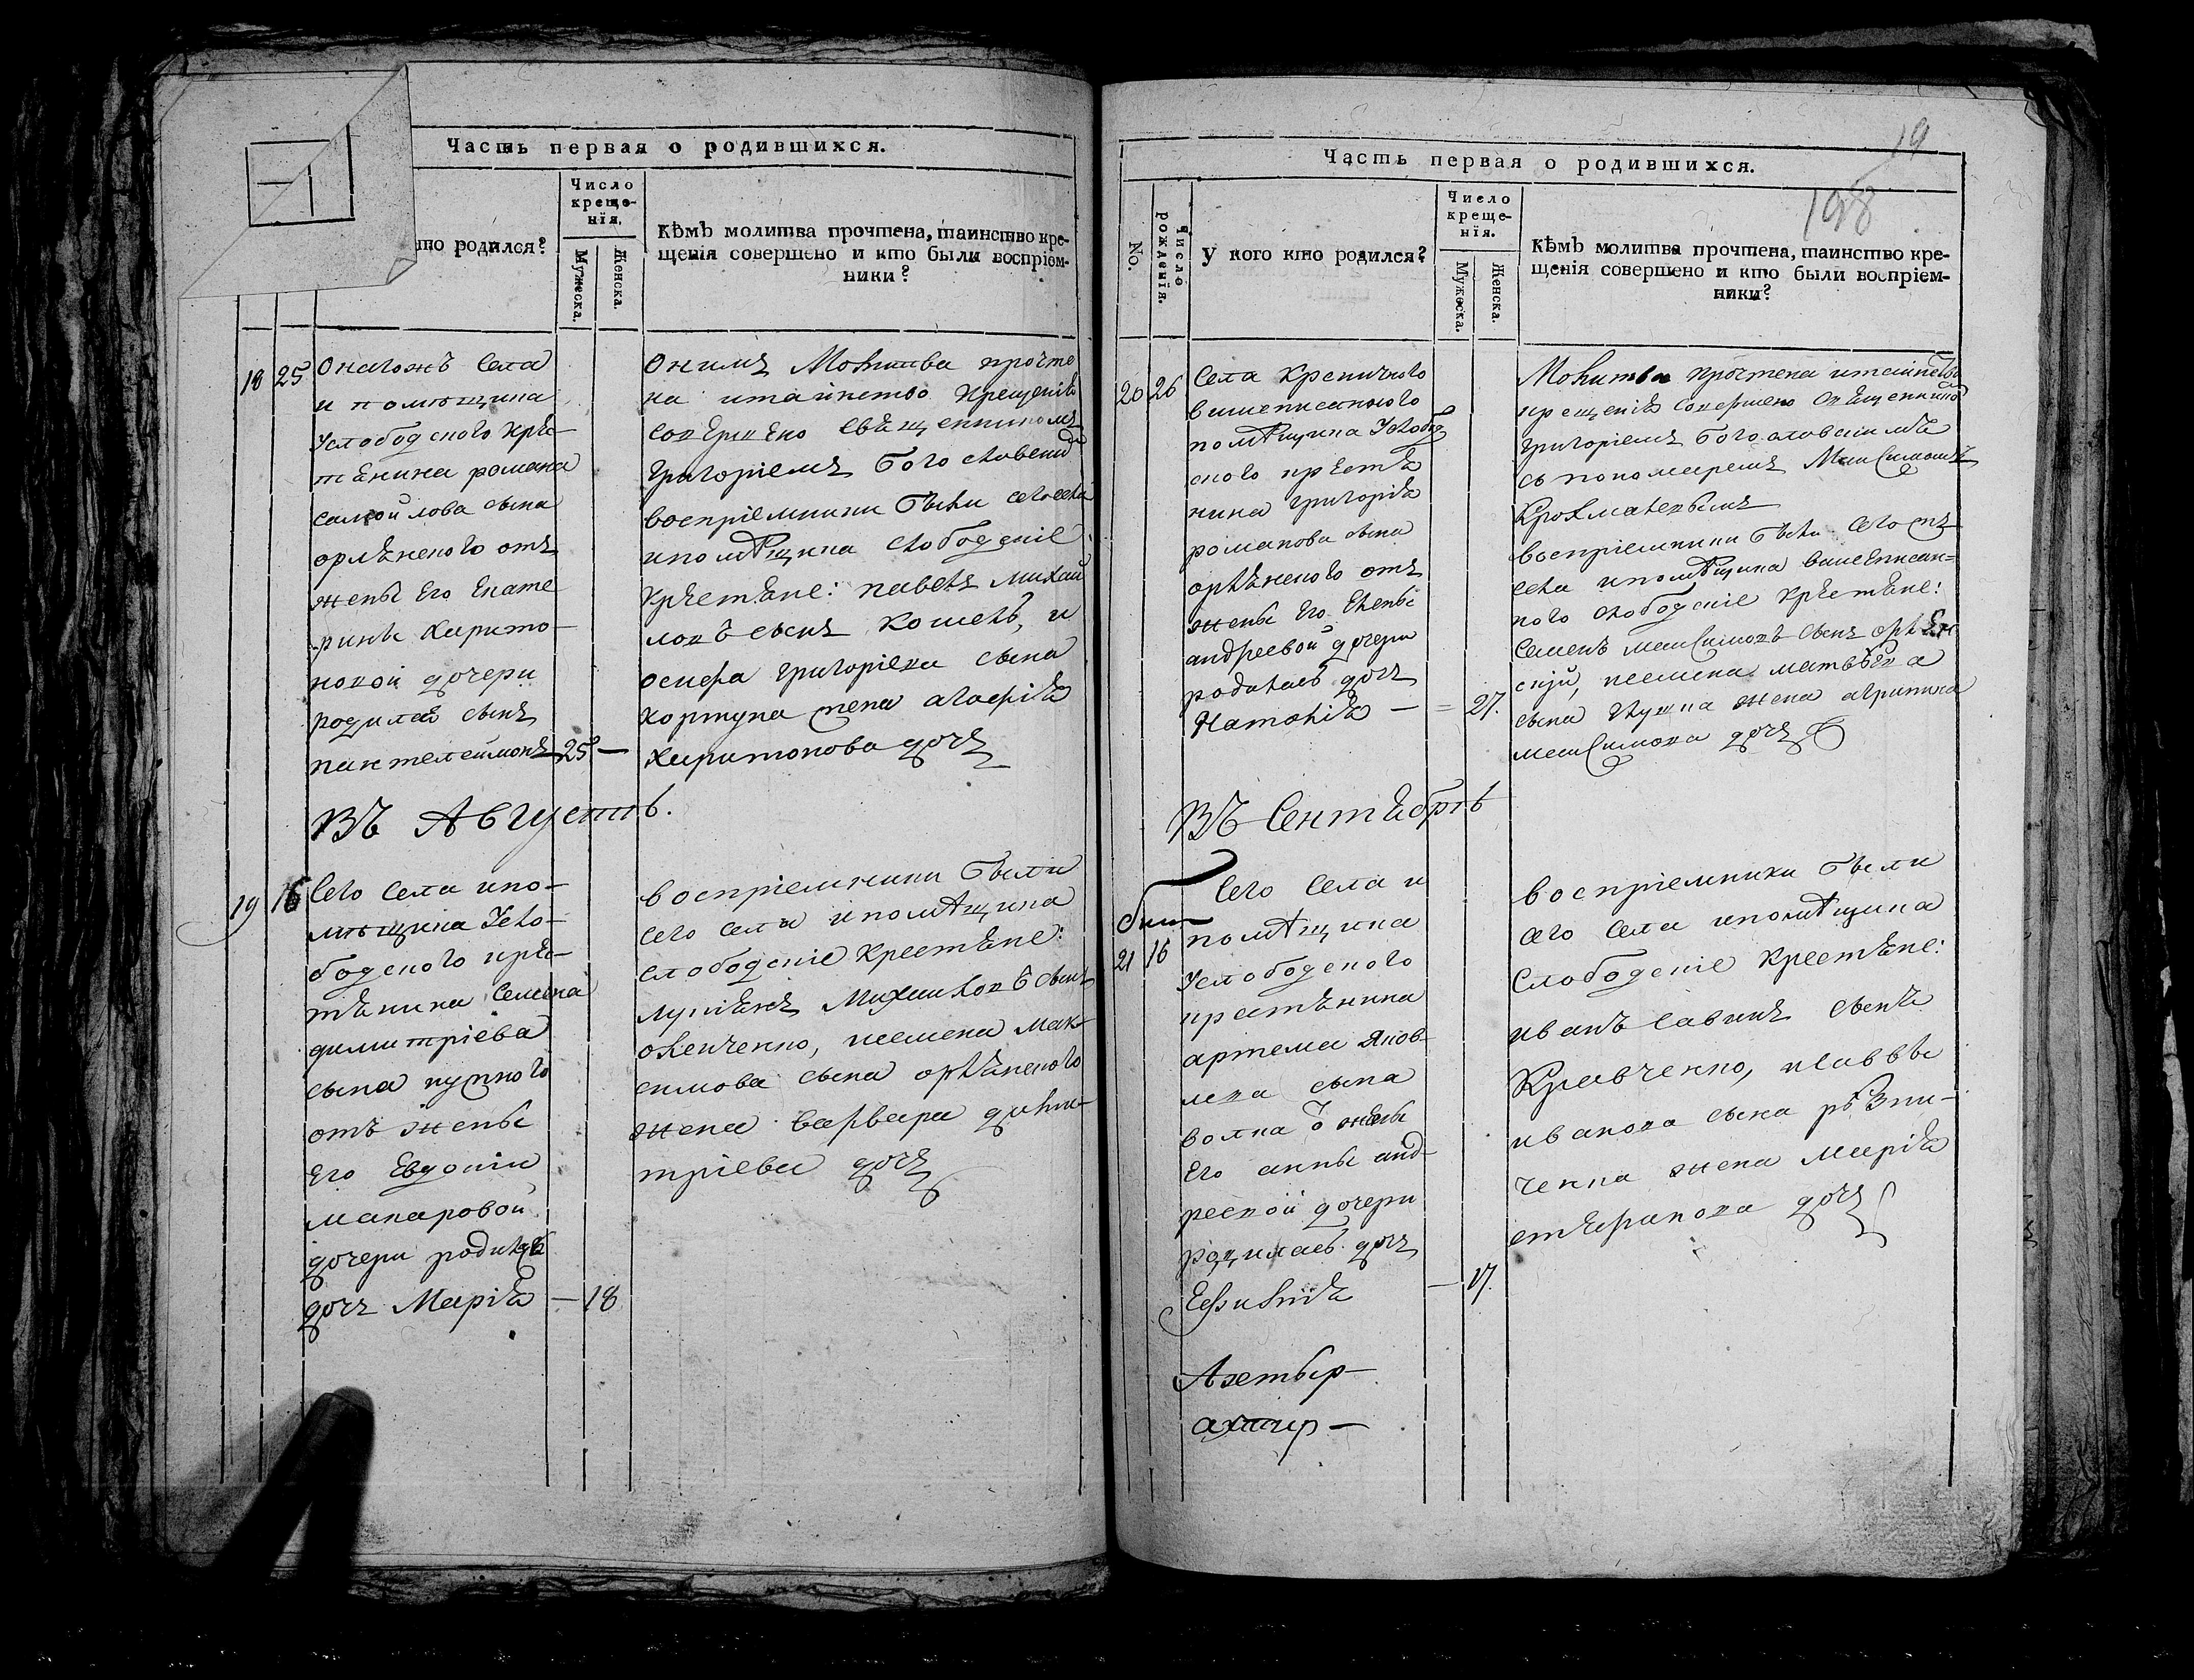 Часть первая о родившихся.
то родился?
Число
креще-
нія.
Мужеска.
Женска.
Кѣмъ молитва прочтена, таинство кре-
щенія совершено и кто были воспріем-
ники?
18 25 Онагожъ села
и помѣщика
Услободского кре-
стянина романа
самойлова сына
орлянского отъ
жены Его Екате
рины Харито-
новой дочери
родился сынъ
пантелеимонъ 25 —
онимъ Молитва прочте
на итаинство Крещенія
совершено священникомъ
Григоріемъ Богословски
воспріемники были сегосела
ипомѣщика слободскіе
Крестяне: павелъ михай
ловъ сынъ кошель, и
осифа григоріева сына
хортуна жена агафія
харитонова дочь
Въ Августѣ.
19 16 Сего села ипо-
мѣщика Усло-
бодского кре-
стянина Семена
димитріева
сына
отъ жены
Его Евдокіи
макаровой
дочери родилась
дочь Марія — 18
воспріемники были
сего села ипомѣщика
слободскіе крестяне:
лукянъ Михаиловъ сынъ
исемена мак-
симова сына орлянского
жена варвара дими-
тріева дочь
19
198
Часть первая о родившихся.
No.
Число
рожденія.
У кого кто родился?
Число
креще-
нія.
Мужеска.
Женска.
Кѣмъ молитва прочтена, таинство кре-
щенія совершено и кто были воспріем-
ники?
20 26 Села Креничного
вишеписанного
помѣщика Услобод
ского крестя
нина григорія
романова сына
орлянского отъ
жены Его Елены
андреевой дочери
родилась дочь
Наталія — = 27.
Молитва прочтена итаинство
крещенія совершено священником
григоріемъ богословскимъ
съ пономаремъ Максимомъ
воспріемники были сегожъ
села ипомѣщика вишеписан-
ного слободскіе крестяне:
Семенъ максимовъ сынъ орлян
скій, исемена матвѣева
сына жена агрипина
максимова дочь
Въ Сентябрѣ
21 16
Сего села и
помѣщика
Услободского
крестянина
артема яков-
лева сына
волка о жены
Его анны анд-
реевой дочери
родилась дочь
— 17.
воспріемники были
сего села ипомѣщика
Слободскіе крестяне:
иванъ савинъ сынъ
Кравченко, исаввы
иванова сына рѣзни-
ченка жена Марія
стефанова дочь